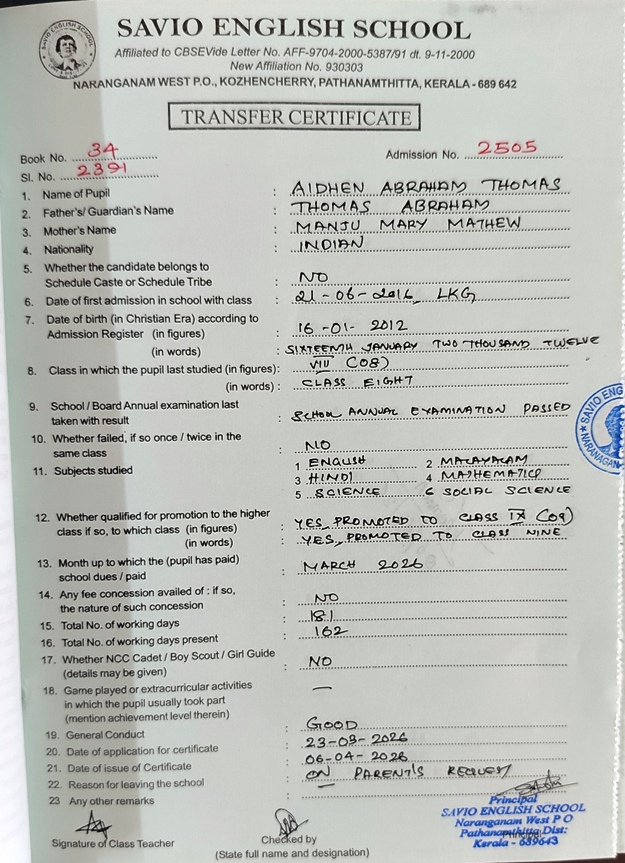 SAVIO ENGLISH SCHOOL
Affiliated to CBSEVide Letter No. AFF-9704-2000-5387/91 dt. 9-11-2000
New Affiliation No. 930303
NARANGANAM WEST P.O., KOZHENCHERRY, PATHANAMTHITTA, KERALA - 689 642
TRANSFER CERTIFICATE
Book No. 34
Admission No. 2505
Sl. No. 2391
1. Name of Pupil : AIDHEN ABRAHAM THOMAS
2. Father's/ Guardian's Name : THOMAS ABRAHAM
3. Mother's Name : MANJU MARY MATHEW
4. Nationality : INDIAN
5. Whether the candidate belongs to
Schedule Caste or Schedule Tribe : NO
6. Date of first admission in school with class : 21-06-2016, LKG
7. Date of birth (in Christian Era) according to
Admission Register (in figures) : 16-01-2012
(in words) : SIXTEENTH JANUARY TWO THOUSAND TWELVE
8. Class in which the pupil last studied (in figures): VIII (08)
(in words) : CLASS EIGHT
9. School / Board Annual examination last
taken with result : SCHOOL ANNUAL EXAMINATION PASSED
10. Whether failed, if so once / twice in the
same class : NO
11. Subjects studied : 1 ENGLISH 2 MALAYALAM
3 HINDI 4 MATHEMATICS
5 SCIENCE 6 SOCIAL SCIENCE
12. Whether qualified for promotion to the higher
class if so, to which class (in figures) : YES, PROMOTED TO CLASS IX (09)
(in words) : YES, PROMOTED TO CLASS NINE
13. Month up to which the (pupil has paid)
school dues / paid : MARCH 2026
14. Any fee concession availed of : if so,
the nature of such concession : NO
15. Total No. of working days : 181
16. Total No. of working days present : 162
17. Whether NCC Cadet / Boy Scout / Girl Guide
(details may be given) : NO
18. Game played or extracurricular activities
in which the pupil usually took part : —
(mention achievement level therein)
19. General Conduct : GOOD
20. Date of application for certificate : 23-03-2026
21. Date of issue of Certificate : 06-04-2026
22. Reason for leaving the school : ON PARENT'S REQUEST
23 Any other remarks :
Signature of Class Teacher
Checked by
(State full name and designation)
Principal
SAVIO ENGLISH SCHOOL
Naranganam West P O
Pathanamthitta Dist:
Kerala - 689643